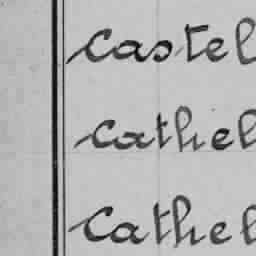 Castel
Cathel
Cathel